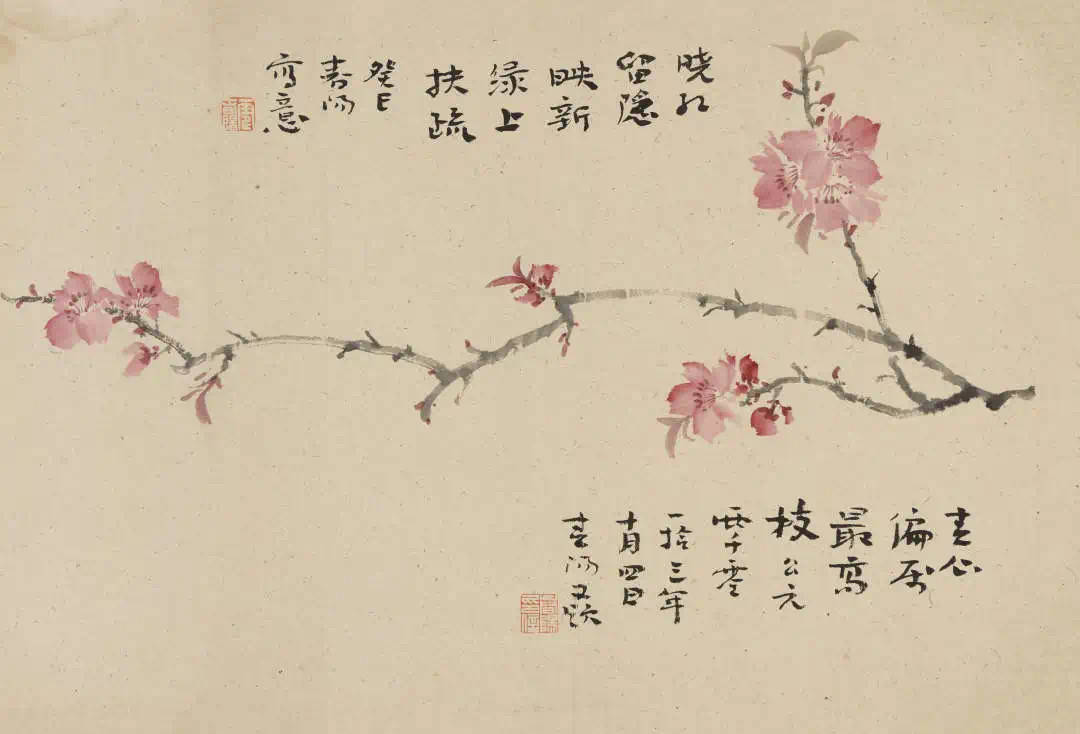 晓红
留隐
映新
绿上
扶疏
癸巳
写意
春心
偏
最高
枝公元
两千零
一拾三年
十月四日
又题